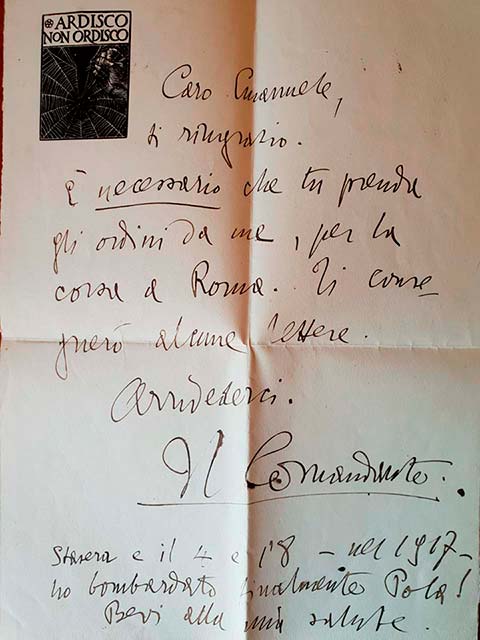 ARDISCO
NON ORDISCO
Caro Emanuele,
ti ringrazio.
È necessario che tu prenda
gli ordini da me, per la
corsa a Roma. Ti conse-
gnerò alcune lettere.
Arrivederci.
Il Comandante.
Stasera è il 4 e l'8 - nel 1917 -
ho bombardato finalmente Pola!
Bevi alla mia salute.